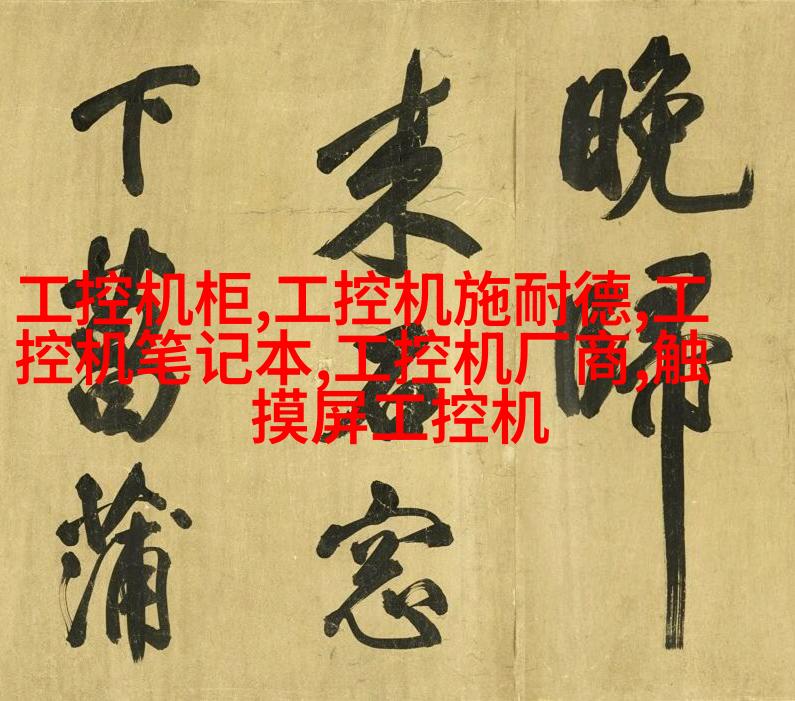 晚歸
来石窓
下菖蒲
工控机柜,工控机施耐德,工
控机笔记本,工控机厂商,触
摸屏工控机